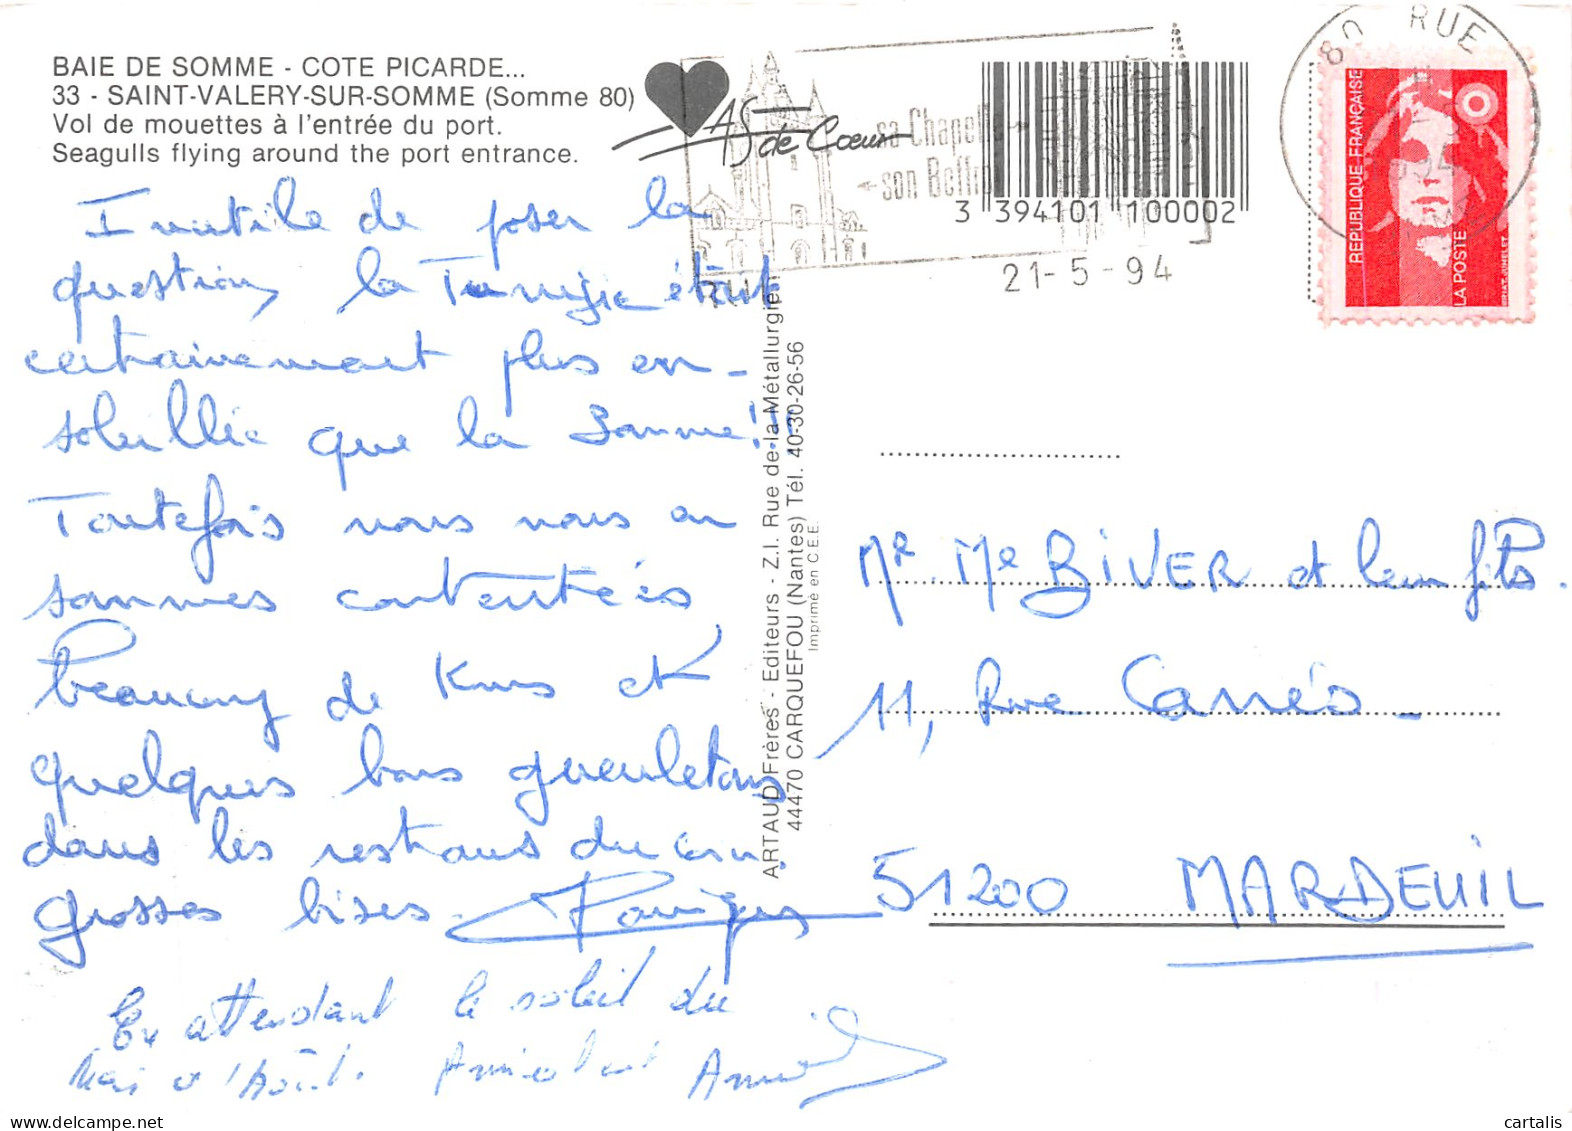 BAIE DE SOMME - COTE PICARDE...
33 - SAINT-VALERY-SUR-SOMME (Somme 80)
Vol de mouettes à l'entrée du port.
Seagulls flying around the port entrance.
AS de Coeur
sa Chapelle
son Beffroi
3 394101 100002
21-5-94
80 RUE
REPUBLIQUE FRANÇAISE
LA POSTE
Inutile de poser la
question, la Tunisie était
certainement plus en-
soleillée que la Somme!!!
Toutefois nous nous en
sommes contentés
Beaucoup de Kms et
quelques bons gueuletons
dans les restaus du coin.
grosses bises.
En attendant le soleil du
Amicalement
ARTAUD Frères - Editeurs - Z.I. Rue de la Métallurgie
44470 CARQUEFOU (Nantes) Tél. 40-30-26-56
Imprimé en C.E.E.
Mr. Me BIVER et leur fils.
11, Rue Carrés -
51200 MARDEUIL
cartalis
cartorum